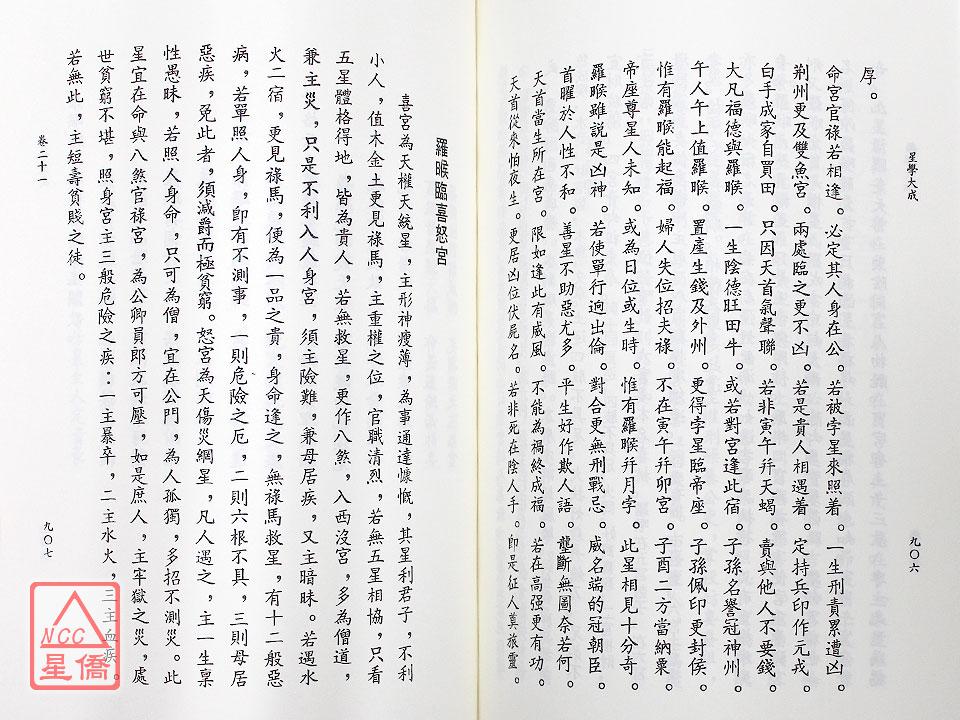 星學大成
九〇六
厚。
命宮官祿若相逢。必定其人身在公。若被孛星來照着。一生刑責累遭凶。
荆州更及雙魚宮。兩處臨之更不凶。若是貴人相遇着。定持兵印作元戎。
白手成家自買田。只因天首氣聲聯。若非寅午幷天蝎。賣與他人不要錢。
大凡福德與羅㬋。一生陰德旺田牛。或若對宮逢此宿。子孫名譽冠神州。
午人午上值羅㬋。置產生錢及外州。更得孛星臨帝座。子孫佩印更封侯。
惟有羅㬋能起福。婦人失位招夫祿。不在寅午幷卯宮。子酉二方當納粟。
帝座尊星人未知。或為日位或生時。惟有羅㬋幷月孛。此星相見十分奇。
羅㬋雖說是凶神。若使單行迥出倫。對合更無刑戰忌。威名端的冠朝臣。
首曜於人性不和。善星不助惡尤多。平生好作欺人語。壟斷無圖奈若何。
天首當生所在宮。限如逢此有威風。不能為禍終成福。若在高强更有功。
天首從來怕夜生。更居凶位伏屍名。若非死在陰人手。即是征人奠旅靈。
羅㬋臨喜怒宮
喜宮為天權天統星，主形神瘦薄，為事通達慷慨，其星利君子，不利
小人，值木金土更見祿馬，主重權之位，官職清烈，若無五星相協，只看
五星體格得地，皆為貴人，若無救星，更作八煞，入西沒宮，多為僧道，
兼主災，只是不利入人身宮，須主險難，兼母居疾，又主暗昧。若遇水
火二宿，更見祿馬，便為一品之貴，身命逢之，無祿馬救星，有十二般惡
病，若單照人身，即有不測事，一則危險之厄，二則六根不具，三則母居
惡疾，免此者，須減爵而極貧窮。怒宮為天傷災綱星，凡人遇之，主一生稟
性愚昧，若照人身命，只可為僧，宜在公門，為人孤獨，多招不測災。此
星宜在命與八煞官祿宮，為公卿員郎方可壓，如是庶人，主牢獄之災，處
世貧窮不堪，照身宮主三般危險之疾：一主暴卒，二主水火，三主血疾。
若無此，主短壽貧賤之徒。
卷二十一
九〇七
NCC
星僑